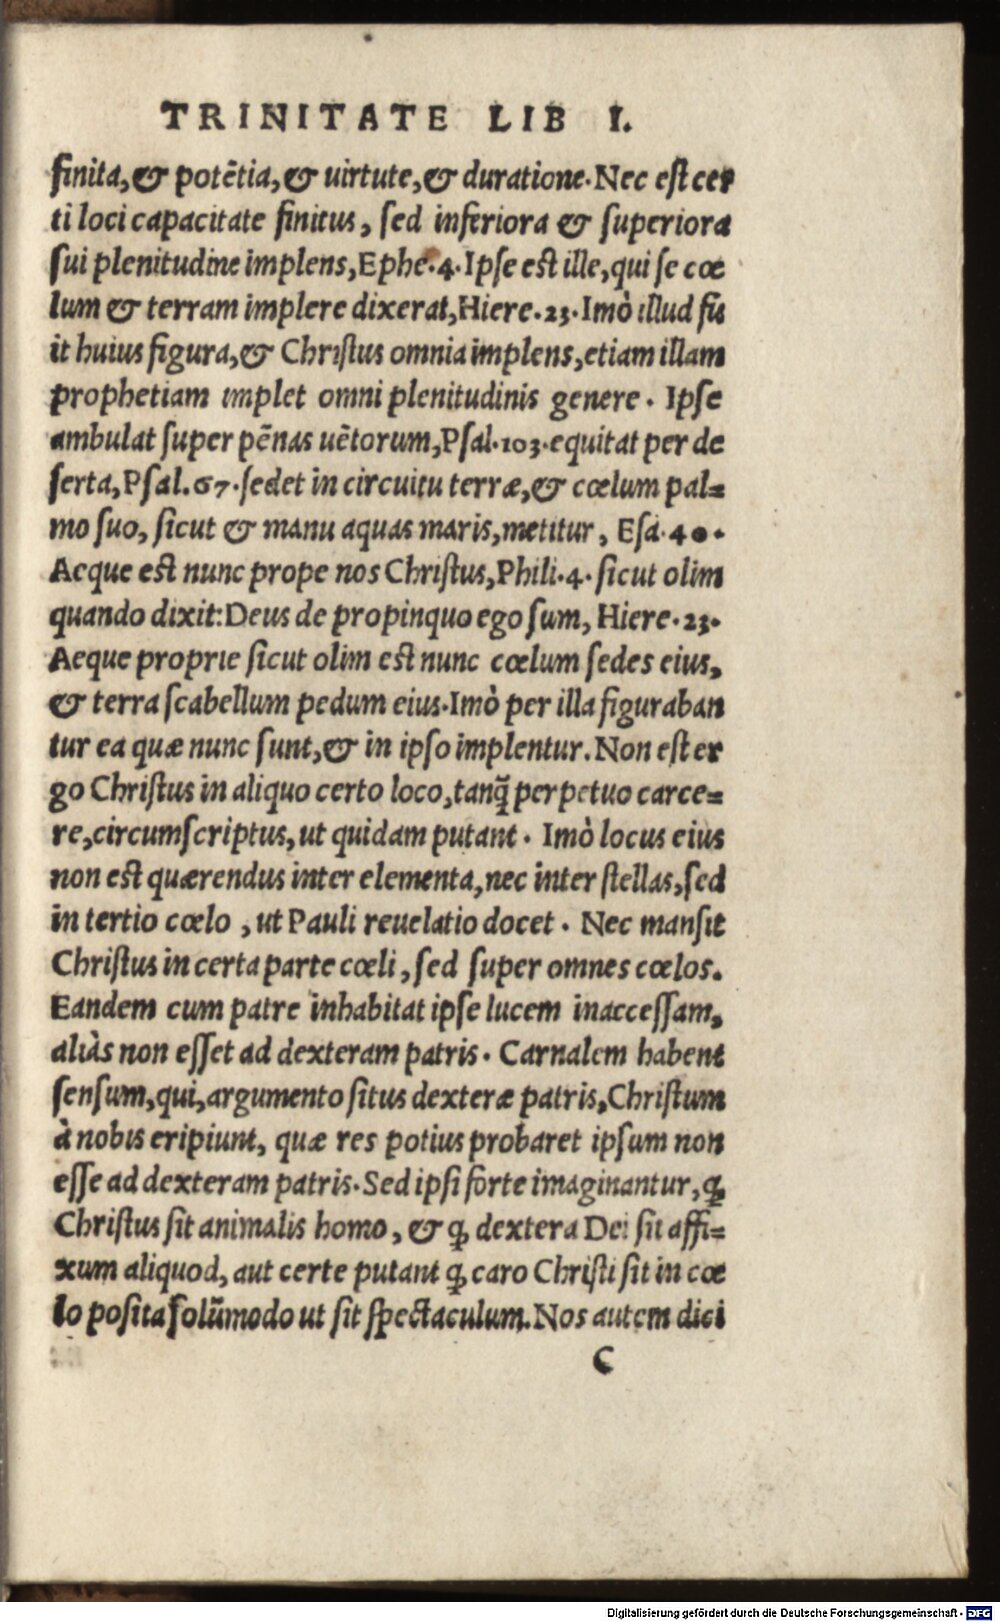 TRINITATE LIB I.
finita, & potẽtia, & uirtute, & duratione. Nec est cer
ti loci capacitate finitus, sed inferiora & superiora
sui plenitudine implens, Ephe. 4. Ipse est ille, qui se cœ
lum & terram implere dixerat, Hiere. 23. Imò illud fu
it huius figura, & Christus omnia implens, etiam illam
prophetiam implet omni plenitudinis genere. Ipse
ambulat super pẽnas uẽtorum, Psal. 103. equitat per de
serta, Psal. 67. sedet in circuitu terræ, & cœlum pal=
mo suo, sicut & manu aquas maris, metitur, Esa. 40.
Aeque est nunc prope nos Christus, Phili. 4. sicut olim
quando dixit: Deus de propinquo ego sum, Hiere. 23.
Aeque proprie sicut olim est nunc cœlum sedes eius,
& terra scabellum pedum eius. Imò per illa figuraban
tur ea quæ nunc sunt, & in ipso implentur. Non est er
go Christus in aliquo certo loco, tanq̃ perpetuo carce=
re, circumscriptus, ut quidam putant. Imò locus eius
non est quærendus inter elementa, nec inter stellas, sed
in tertio cœlo, ut Pauli reuelatio docet. Nec mansit
Christus in certa parte cœli, sed super omnes cœlos.
Eandem cum patre inhabitat ipse lucem inaccessam,
aliàs non esset ad dexteram patris. Carnalem habent
sensum, qui, argumento situs dexteræ patris, Christum
à nobis eripiunt, quæ res potius probaret ipsum non
esse ad dexteram patris. Sed ipsi forte imaginantur, ꝙ
Christus sit animalis homo, & ꝙ dextera Dei sit affi=
xum aliquod, aut certe putant ꝙ caro Christi sit in cœ
lo posita solũmodo ut sit spectaculum. Nos autem dici
C
Digitalisierung gefördert durch die Deutsche Forschungsgemeinschaft - DFG